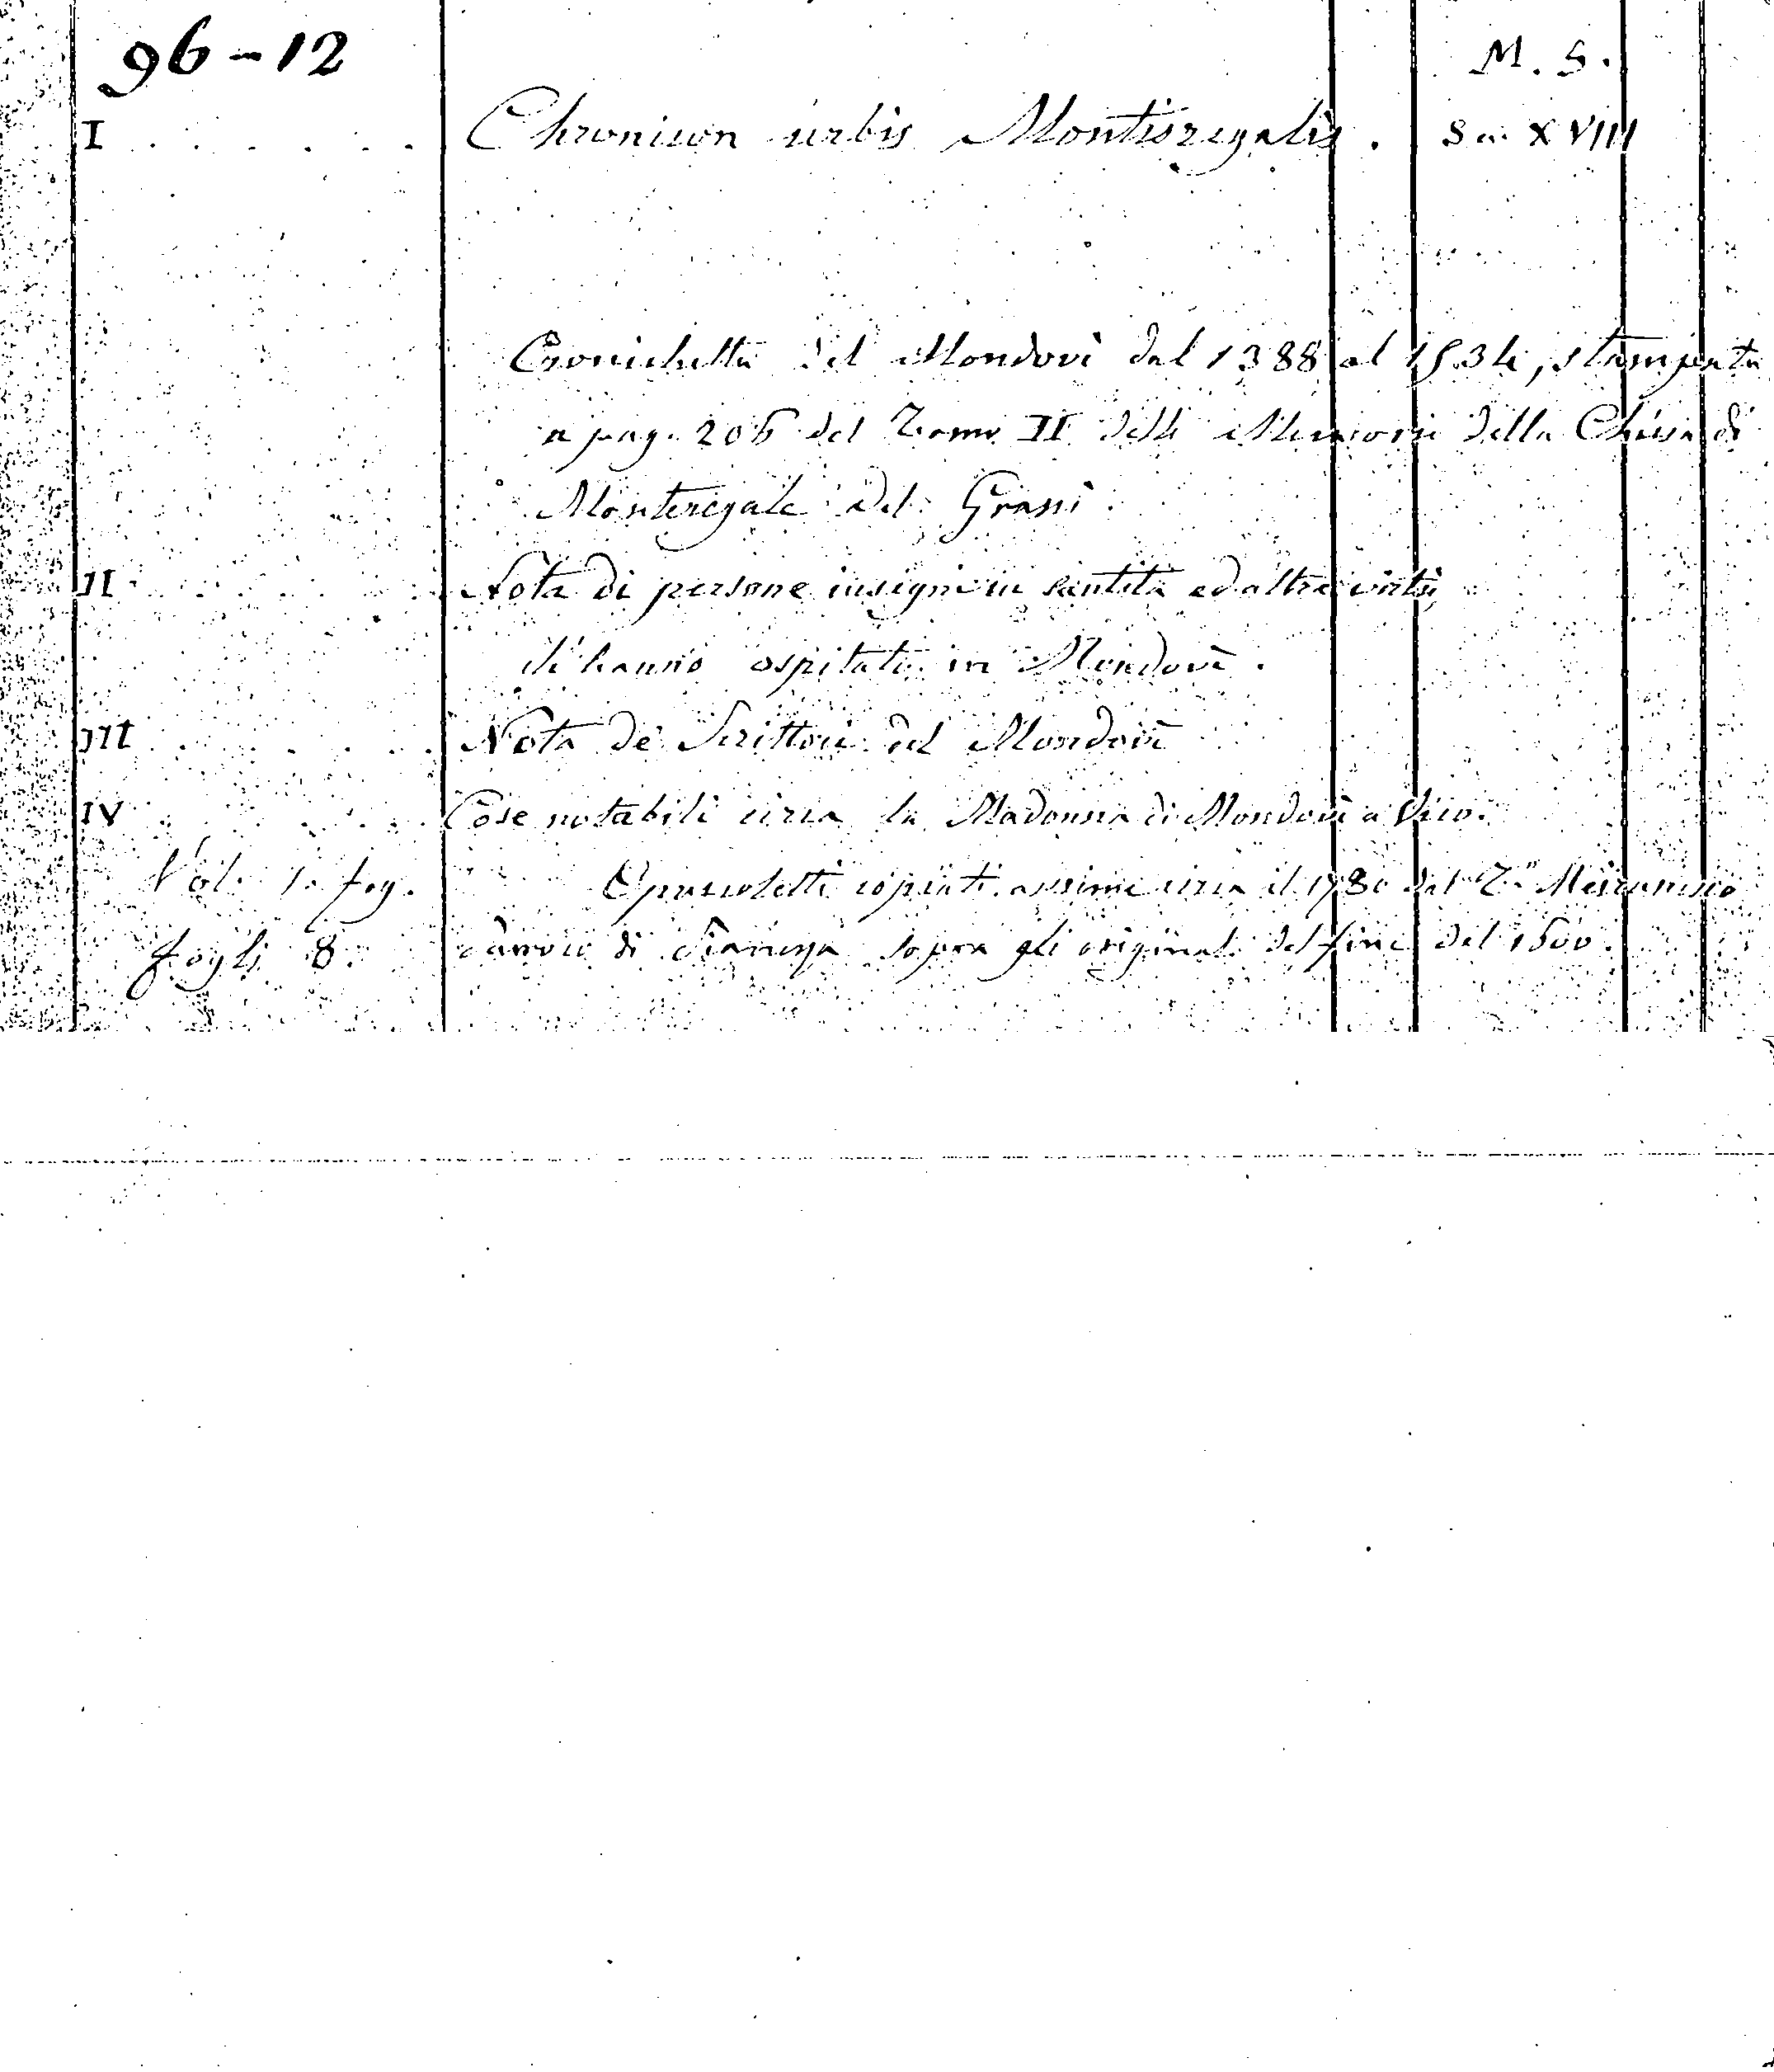 96-12
M. S.
I . . . . . . Chronicon urbis Montisregalis. Sec. XVIII
Cronichetta del Mondovì dal 1388 al 1534, stampata
a pag. 206 del Tomo II delle Memorie della Chiesa di
Monteregale del Grassi.
II . . . . . . Nota di persone insigni in santità ed altre virtù
ch'hanno ospitato in Mondovì.
III . . . . . . Nota de' Scrittori del Mondovì
IV . . . . . . Cose notabili circa la Madonna di Mondovì a Vico.
Vol. 1. fog. Opuscoletti copiati assieme circa il 1780 dal
fogli 8. di sopra gli originali del fine del 1600.